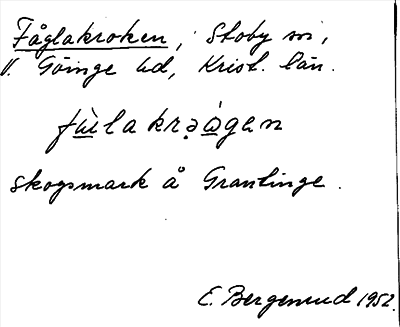 Fåglakroken, Stoby sn,
V. Göinge hd, Krist. län.
fùlakrǫàgen
skogsmark å Grantinge.
E. Bergenrud 1952.